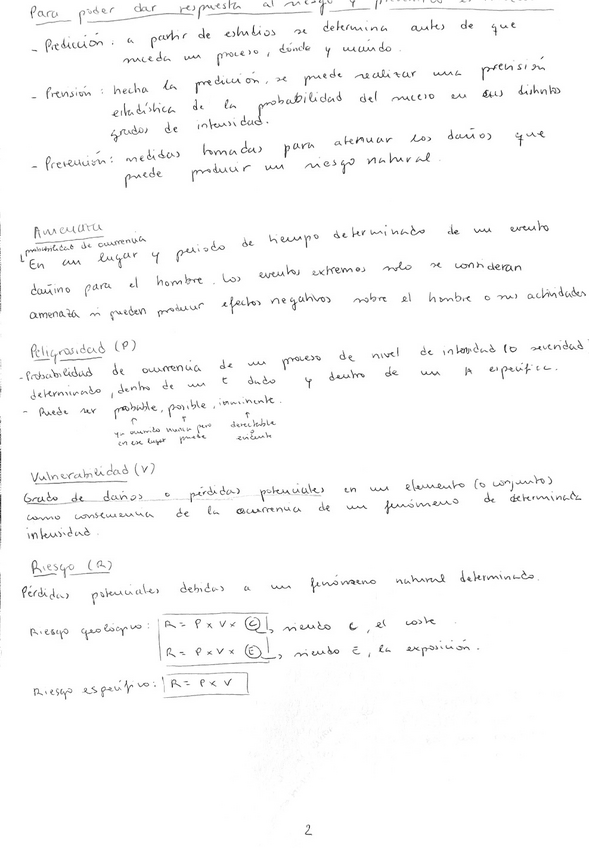 Para poder dar respuesta al riesgo y
- Predicción: a partir de estudios se determina antes de que
suceda un proceso, dónde y cuándo.
- Previsión: hecha la predicción, se puede realizar una previsión
estadística de la probabilidad del suceso en sus distintos
grados de intensidad.
- Prevención: medidas tomadas para atenuar los daños que
puede producir un riesgo natural.
Amenaza
probabilidad de ocurrencia
En un lugar y periodo de tiempo determinado de un evento
dañino para el hombre. Los eventos extremos solo se consideran
amenaza si pueden producir efectos negativos sobre el hombre o sus actividades
Peligrosidad (P)
- Probabilidad de ocurrencia de un proceso de nivel de intensidad (o severidad)
determinado, dentro de un t dado y dentro de un A específica.
- Puede ser probable, posible, inminente.
ya ocurrido nunca pero detectable
en ese lugar puede
Vulnerabilidad (V)
Grado de daños o pérdidas potenciales en un elemento (o conjunto)
como consecuencia de la ocurrencia de un fenómeno de determinada
intensidad.
Riesgo (R)
Pérdidas potenciales debidas a un fenómeno natural determinado.
Riesgo geológico: R = P x V x C, siendo C, el coste.
R = P x V x E, siendo E, la exposición.
Riesgo específico: R = P x V
2